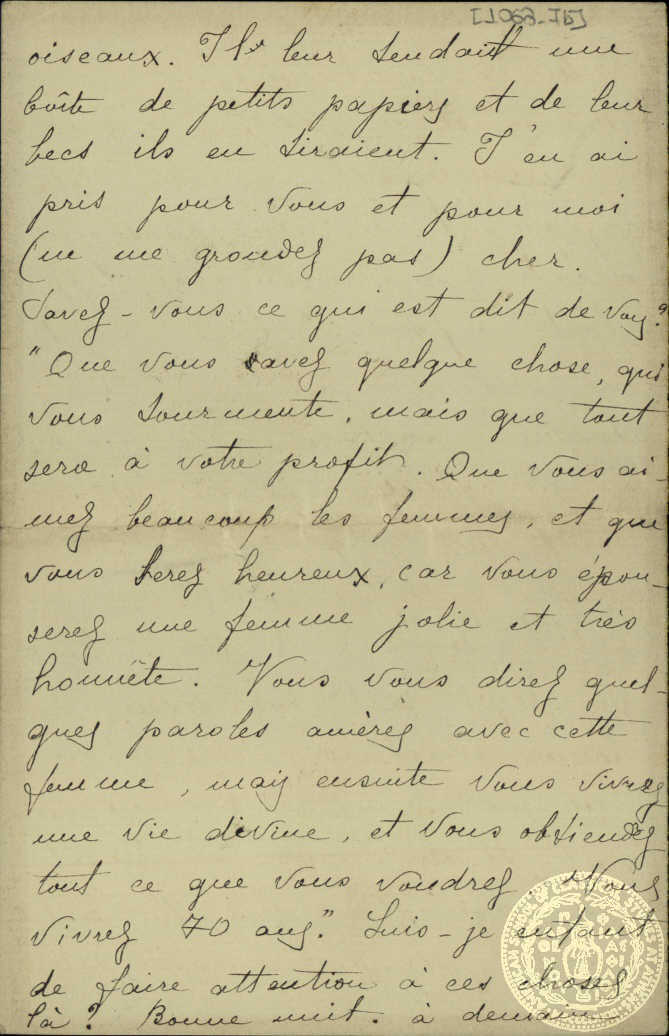 [1069-Ib]
oiseaux. Ils leur tendait une
boîte de petits papiers et de leur
becs ils en tiraient. J'en ai
pris pour vous et pour moi
(ne me grondez pas) cher.
Savez-vous ce qui est dit de vous?
"Que vous avez quelque chose, qui
vous tourmente, mais que tout
sera à votre profit. Que vous ai-
mez beaucoup les femmes, et que
vous serez heureux, car vous épou-
serez une femme jolie et très
honnête. Vous vous direz quel-
ques paroles amères avec cette
femme, mais ensuite vous vivrez
une vie divine, et vous obtiendrez
tout ce que vous voudrez. Vous
vivrez 70 ans." Suis-je enfant
de faire attention à ces choses
là? Bonne nuit. à demain
AMERICAN SCHOOL OF CLASSICAL STUDIES AT ATHENS